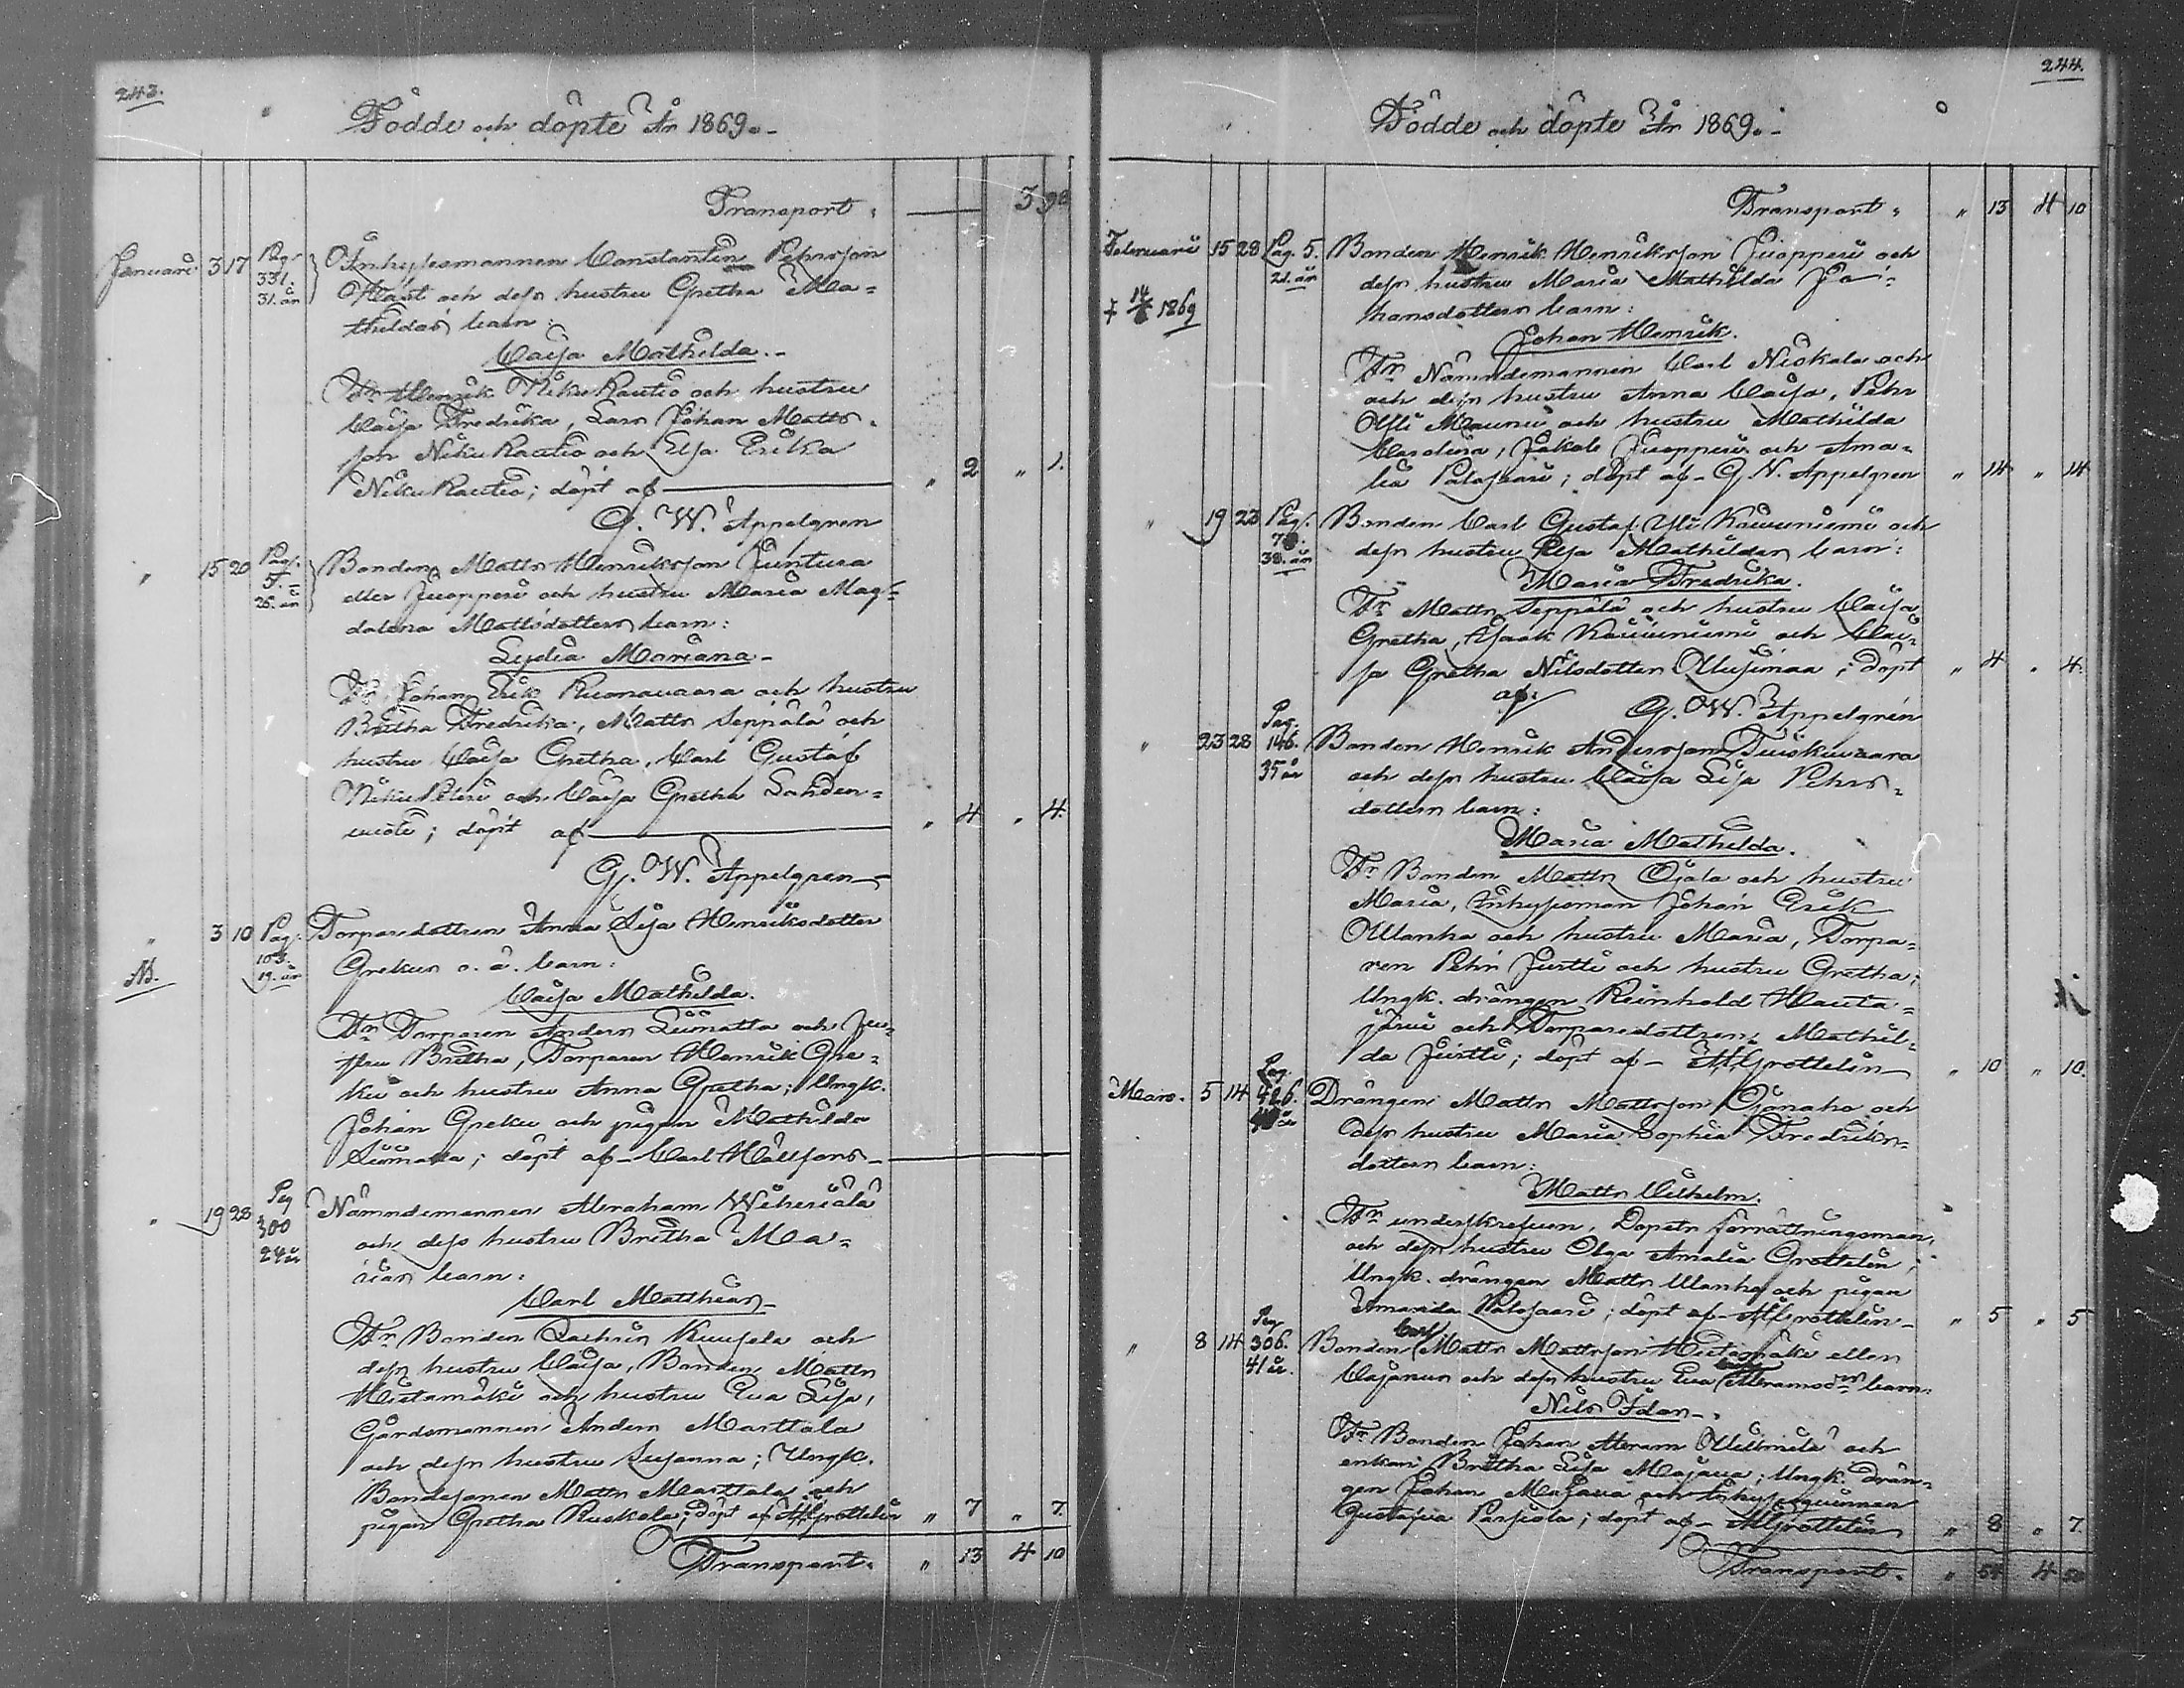 243.
Födde och döpte År 1869.
Transport. 3 90
Januari 3 17 Pag. 331. 31. år Inhysesmannen Constantin Pehrsson
och dess hustru Gretha Ma=
thildas barn:
Caisa Mathilda.
Fr. Henrik Niku Rautio och hustru
Caisa Fredrika, Lars Johan Matts=
son Niku Rautio och Elsa Erika
Niku Rautio; döpt af " 2 " 1.
G. W. Appelgren
" 15 20 Pag. 5. 26. år Bonden Matts Henriksson Juntura
eller Juopperi och hustru Maria Mag=
dalena Mattsdotters barn:
Lydia Mariana
Fr. Johan Erik Kuonavaara och hustru
Britha Fredrika, Matts Seppälä och
hustru Caisa Gretha, Carl Gustaf
Niku Peteri och Caisa Gretha Lahden=
; döpt af " 4 " 4.
G. W. Appelgren
" 3 10 Pag. 103. 19. år Torparedottren Anna Lisa Henriksdotter
NB. Grekus o. ä. barn:
Caisa Mathilda.
Fr. Torparen Anders Liimatta och hu=
stru Britha, Torparen Henrik Gre=
ku och hustru Anna Gretha; Ungk.
Johan Greku och pigan Mathilda
Liimatta; döpt af Carl Hällfors
" 19 28 Pag 300 24 år Nämndemannen Abraham Wiheriälä
och dess hustru Britha Ma=
rias barn:
Carl Matthias
Fr. Bonden Zachris Kuusela och
dess hustru Caisa, Bonden Matts
Hietamäki och hustru Eva Lisa,
Gårdsmannen Anders Marttala
och dess hustru Susanna; Ungk.
Bondesonen Matts Marttala och
pigan Gretha Ruokola; döpt af A. Grottelin " 7 " 7.
Transport. " 13 4 10
244.
Födde och döpte År 1869.
Transport. " 13 4 10
Februari 15 28 Pag. 5. 21. år Bonden Henrik Henriksson Juopperi och
dess hustru Maria Mathilda Jo=
† 1869 hansdotters barn:
Johan Henrik.
Fr. Nämndemannen Carl Niskala och
och dess hustru Anna Caisa, Pehr
Ylli Maunu och hustru Mathilda
Carolina, Jakob Juopperi och Ama=
lia Palosaari; döpt af G. W. Appelgren " 14 " 14
" 19 23 Pag. 38. år Bonden Carl Gustaf Yli Kauniemi och
dess hustru Elsa Mathildas barn:
Maria Fredrika.
Fr. Matts Seppälä och hustru Caisa
Gretha, Isaak Kauniemi och Cai=
sa Gretha Nilsdotter Ylusimaa; döpt " 4 " 4.
af:
G. W. Appelgren
" 23 28 Pag. 146. 35 år Bonden Henrik Andersson Tuiskuvaara
och dess hustru Caisa Lisa Pehrs=
dotters barn:
Maria Mathilda.
Fr. Bonden Matts Ojala och hustru
Maria, Inhysesman Johan Erik
Ollanha och hustru Maria, Torpa=
ren Pehr Jurtti och hustru Gretha;
Ungk. drängen Reinhold Hauta=
järvi och Torparedottren Mathil=
da Jurtti; döpt af A. Grottelin " 10 " 10.
Mars. 5 14 Pag. 426. Drängen Matts Mattsson Ojanaho och
dess hustru Maria Sophia Fredriks=
dotters barn:
Matts Wilhelm.
Fr. underskrefven, Dopets förrättningsman,
och dess hustru Olga Amalia Grottelin;
Ungk. drängen Matts Ulanha och pigan
Amanda Palosaari; döpt af A. Grottelin " 5 " 5
" 8 14 Pag 306. 41 år. Bonden Carl Matts Mattsson Hietamäki eller
Cajanus och dess hustru Eva Abramsd:rs barn:
Nils Idan
Fr. Bonden Johan Abram Ylliniitti och
enkan Britha Lisa Majava; Ungk. drän=
gen Johan Majava och Inhysesquinnan
Gustafva Parsiola; döpt af A. Grottelin " 8 " 7.
Transport. " 54 4 50